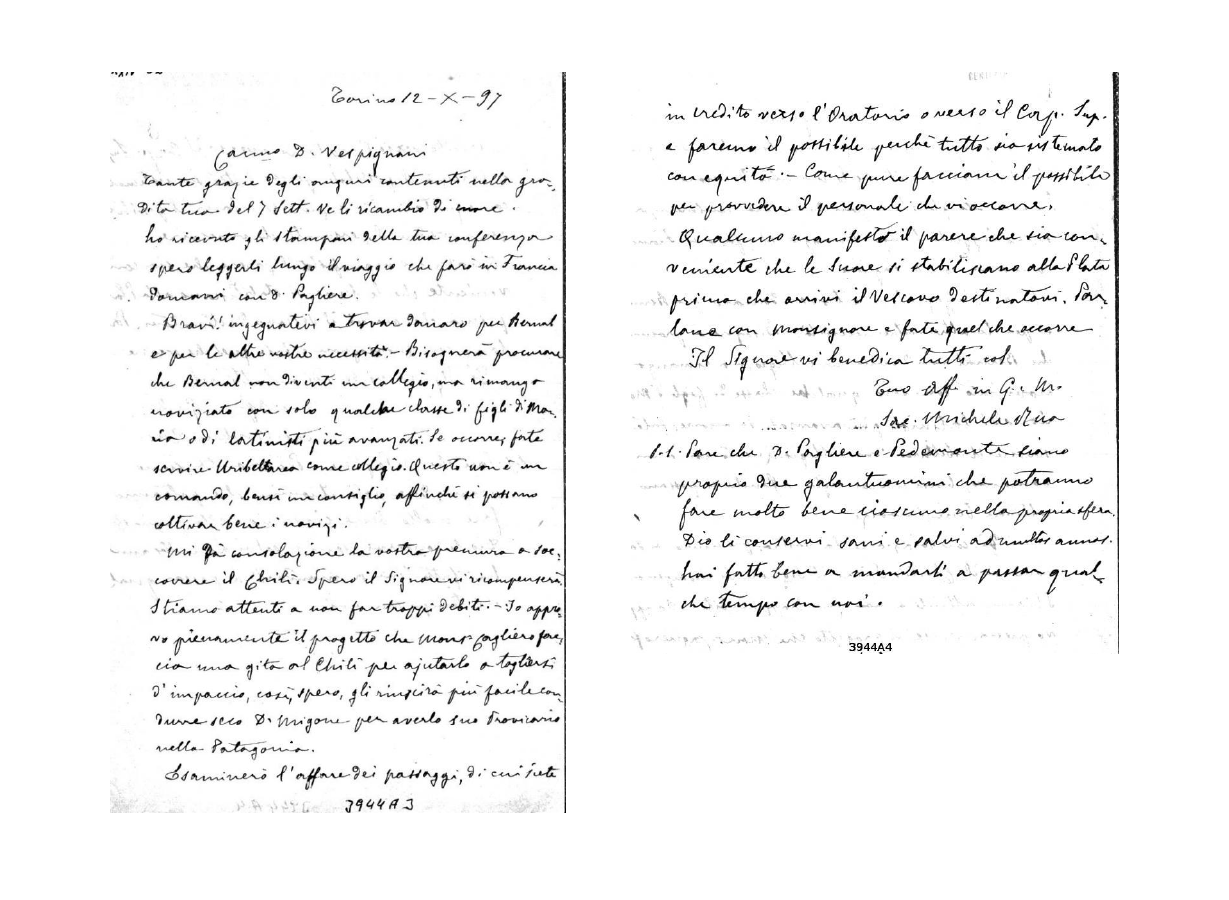 Torino 12-X-97
Carmo D. Vespignani
Tante grazie degli auguri contenuti nella gra-
dita tua del 7 Sett. Ve li ricambio di cuore.
ho ricevuto gli stampati della tua conferenza
spero leggerli lungo il viaggio che farò in Francia
domani con D. Pagliere.
Bravi! ingegnatevi a trovar danaro per Bernal
e per le altre vostre necessità.- Bisognerà procurare
che Bernal non diventi un collegio, ma rimanga
noviziato con solo qualche classe di figli di Ma-
ria o di latinisti più avanzati. Se occorre, fate
servire Uribellarea come collegio. Questo non è un
comando, bensì un consiglio, affinchè si possano
coltivar bene i novizi.
Mi dà consolazione la vostra premura a soc-
correre il Chilì. Spero il Signore vi ricompenserà
Stiamo attenti a non far troppi debiti.- Io appro-
vo pienamente il progetto che Monsr Cagliero fac-
cia una gita al Chilì per ajutarlo a togliersi
d'impaccio, così, spero, gli riuscirà più facile con-
durre seco D. Migone per averlo suo Provicario
nella Patagonia.
Esaminerò l'affare dei passaggi, di cui siete
3944A3
in credito verso l'Oratorio o verso il Cap. Sup.
e faremo il possibile perchè tutto sia sistemato
con equità.- Come pure facciam il possibile
per provvedere il personale che vi occorre.
Qualcuno manifestò il parere che sia con-
veniente che le Suore si stabiliscano alla Plata
prima che arrivi il Vescovo destinatovi. Par-
lane con Monsignore e fate quel che occorre
Il Signore vi benedica tutti col
Tuo aff. in G. M.
Sac. Michele Rua
P.S. Pare che D. Pagliere e Pedemonte siano
proprio due galantuomini che potranno
fare molto bene ciascuno nella propria sfera.
Dio li conservi sani e salvi ad multos annos.
hai fatto bene a mandarli a passar qual-
che tempo con noi.
3944A4